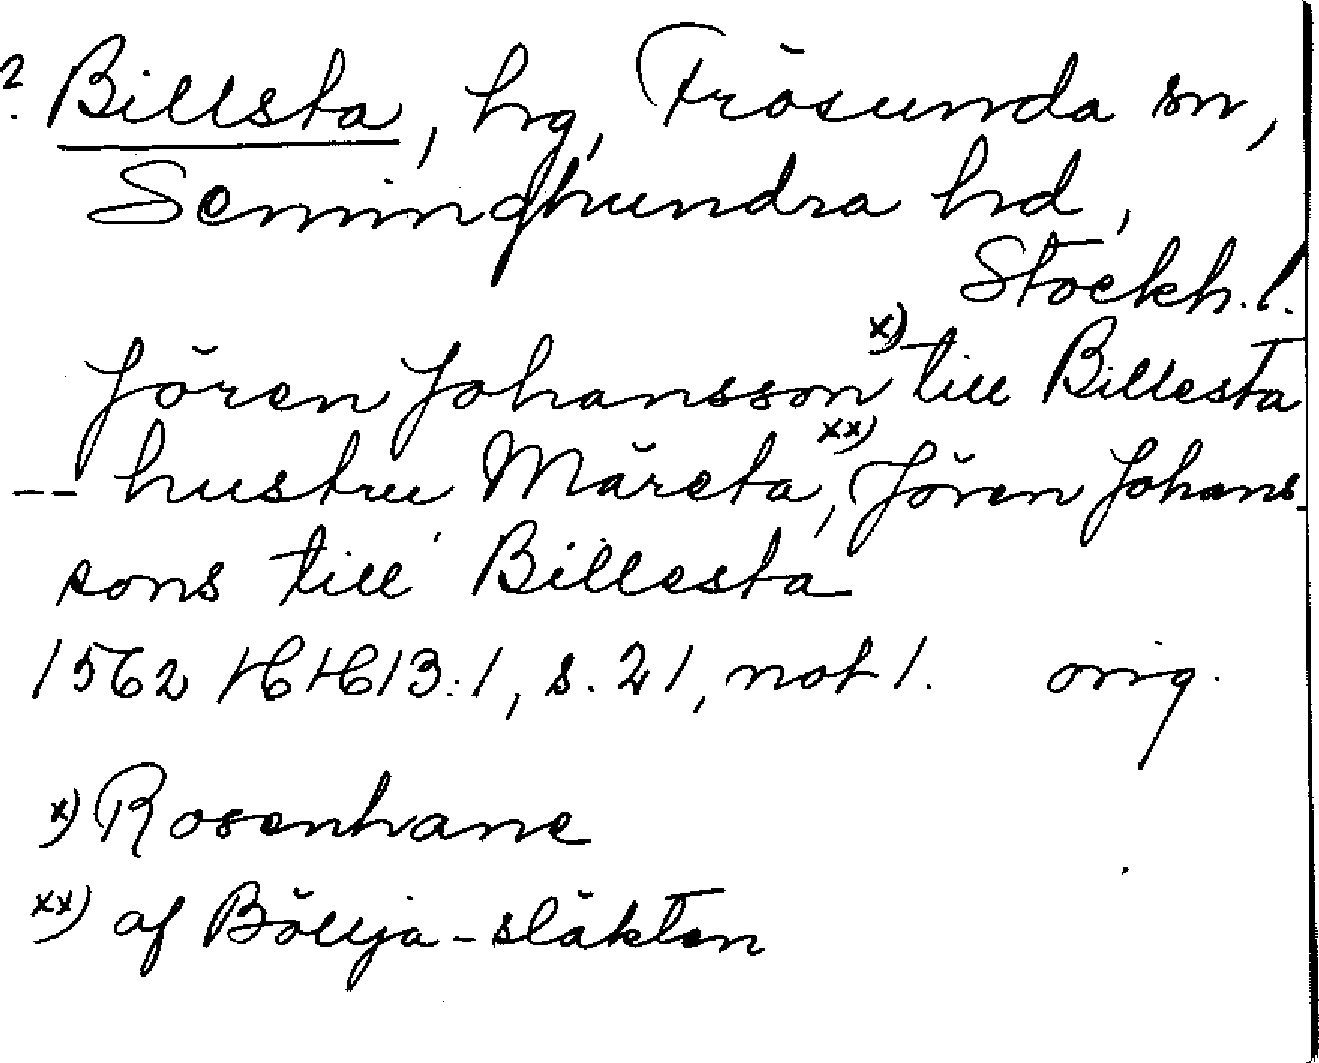 ? Billsta, hg, Frösunda sn,
Seminghundra hd,
Stockh. l.
Jören Johansson x) till Billesta
-- hustru Märeta xx), Jören Johans-
sons till Billesta
1562 HH 13:1, s. 21, not 1. orig.
x) Rosenhane
xx) af Böllja-släkten